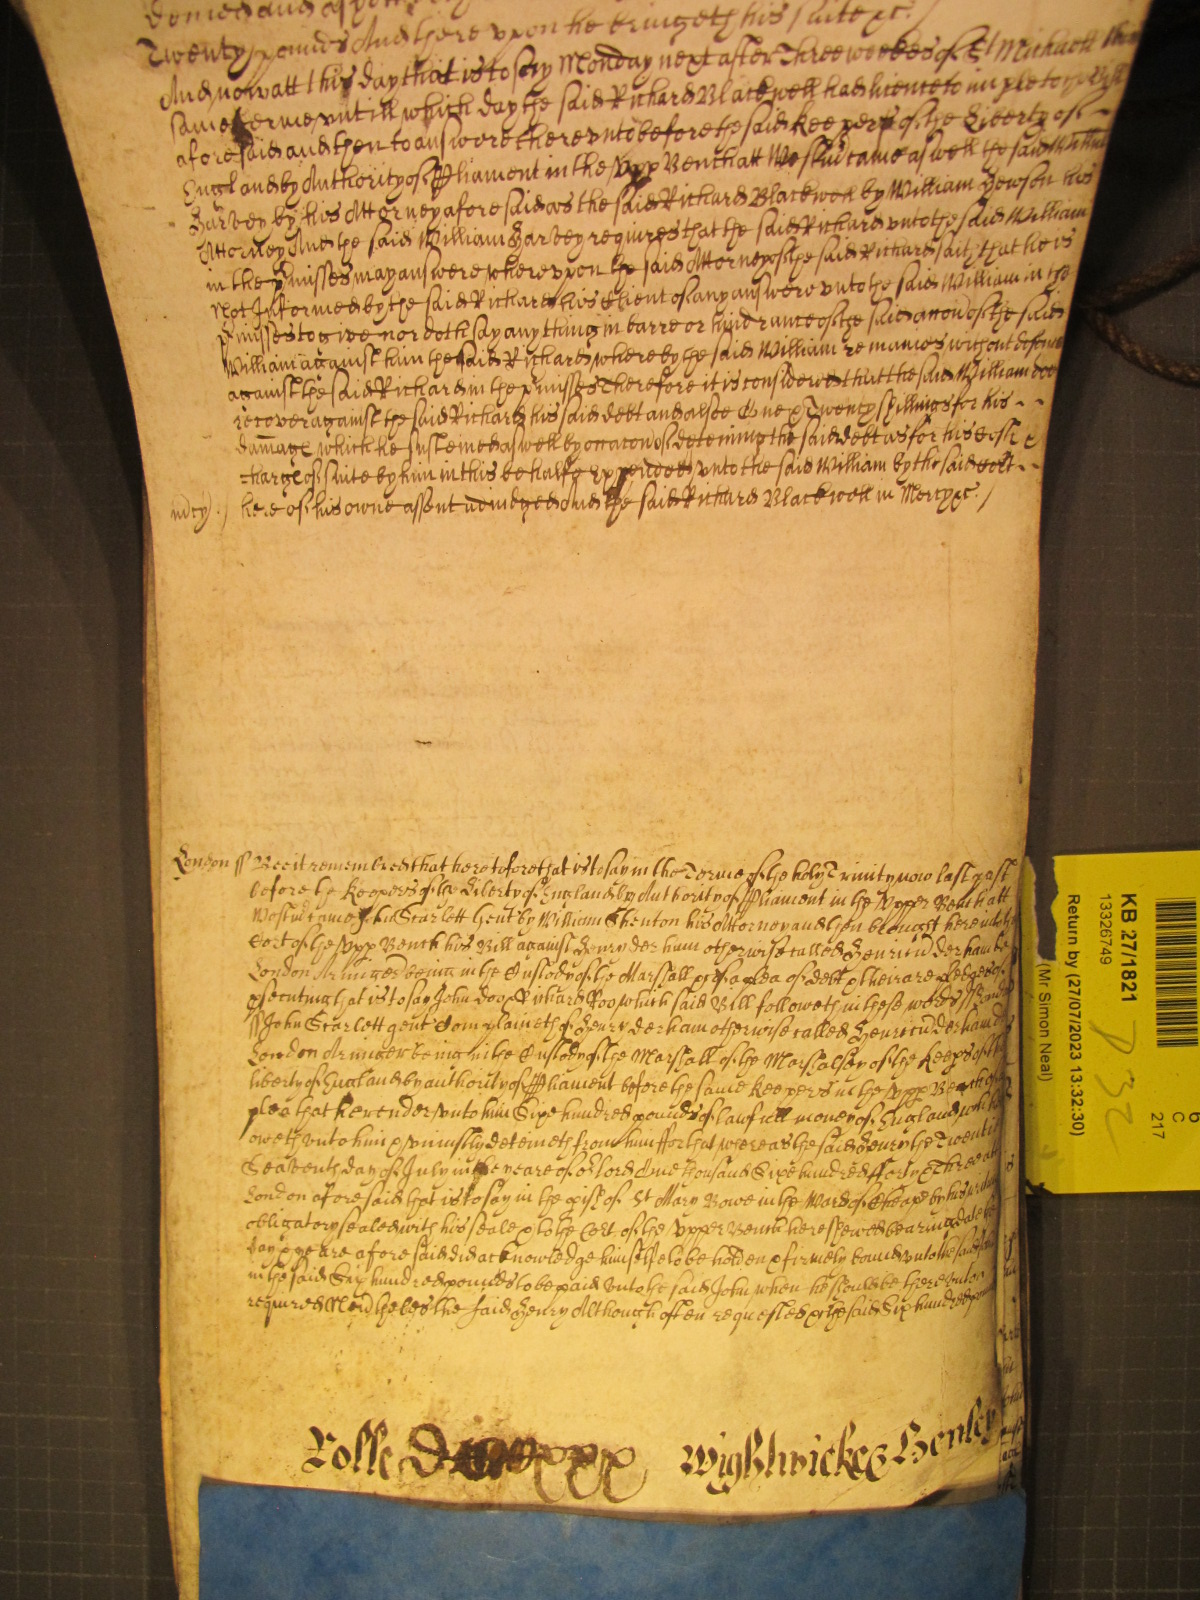 Twenty pounds And there upon he bringeth his suite &c. /
And now att this day that is to say Monday next after Three weekes of St Michaell
same Terme untill which day the said Richard Blackwell had licence to imple to
aforesaid and then to answere there unto before the said Keepers of the Liberty of
England by Authority of Pliament in the Upp Bench att Westm came as well the said William
Harvey by his Attorney aforesaid as the said Richard Blackwell by William Hewson his
Attorney And the said William Harvey requires that the said Richard unto the said William
in the pmisses may answere whereupon the said Attorney of the said Richard saith that he is
not Informed by the said Richard his Client of any answere unto the said William in the
pmisses to give nor doth say any thing in barre or hindrance of the said accon of the said
William against him the said Richard whereby the said William remaines without defence
against the said Richard in the pmisses Therefore it is considered that the said William doe
recover against the said Richard his said debt and alsoe One & Twenty shillings for his
damage which he susteined as well by occacon of deteining the said debt as for his Costs &
charges of suite by him in this behalfe Expended unto the said William by the said Cort
mcy. / here of his owne assent adiudged And the said Richard Blackwell in Mercy &c. /
London ss Bee it remembred that heretofore that is to say in the Terme of the holy Trinity now last past
before the Keepers of the Liberty of England by Authority of Pliament in the Upper Bench att
Westm came John Scarlett gent by William Shenton his Attorney and then brought here into the
Cort of the Upp Bench his Bill against Henry derham otherwise called Henricu derham de
London Arminger being in the Custody of the Marshall &c of a plea of debt & theire are pledges of
psecuting that is to say John doo & Richard Roo which said Bill followeth in these words ss London
ss John Scarlett gent Complaineth of Henry derham otherwise called Henricu derham de
London Arminger being in the Custody of the Marshall of the Marshalsey of the Keeps of the
liberty of England by authority of Pliament before the same Keepers in the Upp Bench of a
plea that he render unto him Sixe hundred pounds of lawfull money of England which he
oweth unto him & uniustly deteineth from him ffor that whereas the said Henry the Twentie
Seaventh day of July in the yeare of or lord One thousand Sixe hundred fforty & Three att
London aforesaid that is to say in the pish of St Mary Bowe in the Ward of Cheape by his writing
obligatory sealed with his seale & to the Cort of the Upper Bench here shewed bearing date the
day & yeare aforesaid did acknowledge himselfe to be holden & firmely bound unto the said John
in the said Six hundred pounds to be paid unto the said John when he should be thereunto
required Nevertheles the said Henry Although often requested &c the said Six hundred pounds
Rolle Wightwicke & Henley
KB 27/1821
13326749
Return by (27/07/2023 13:32:30)
(Mr Simon Neal)
C
217